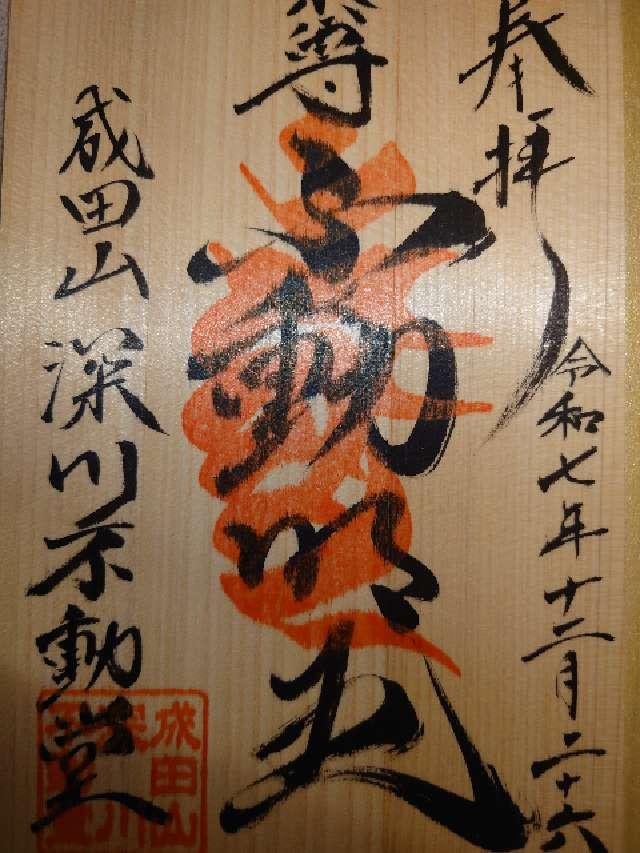 奉拝
令和七年十二月二十六
尊
不動明王
成田山深川不動堂
成田山